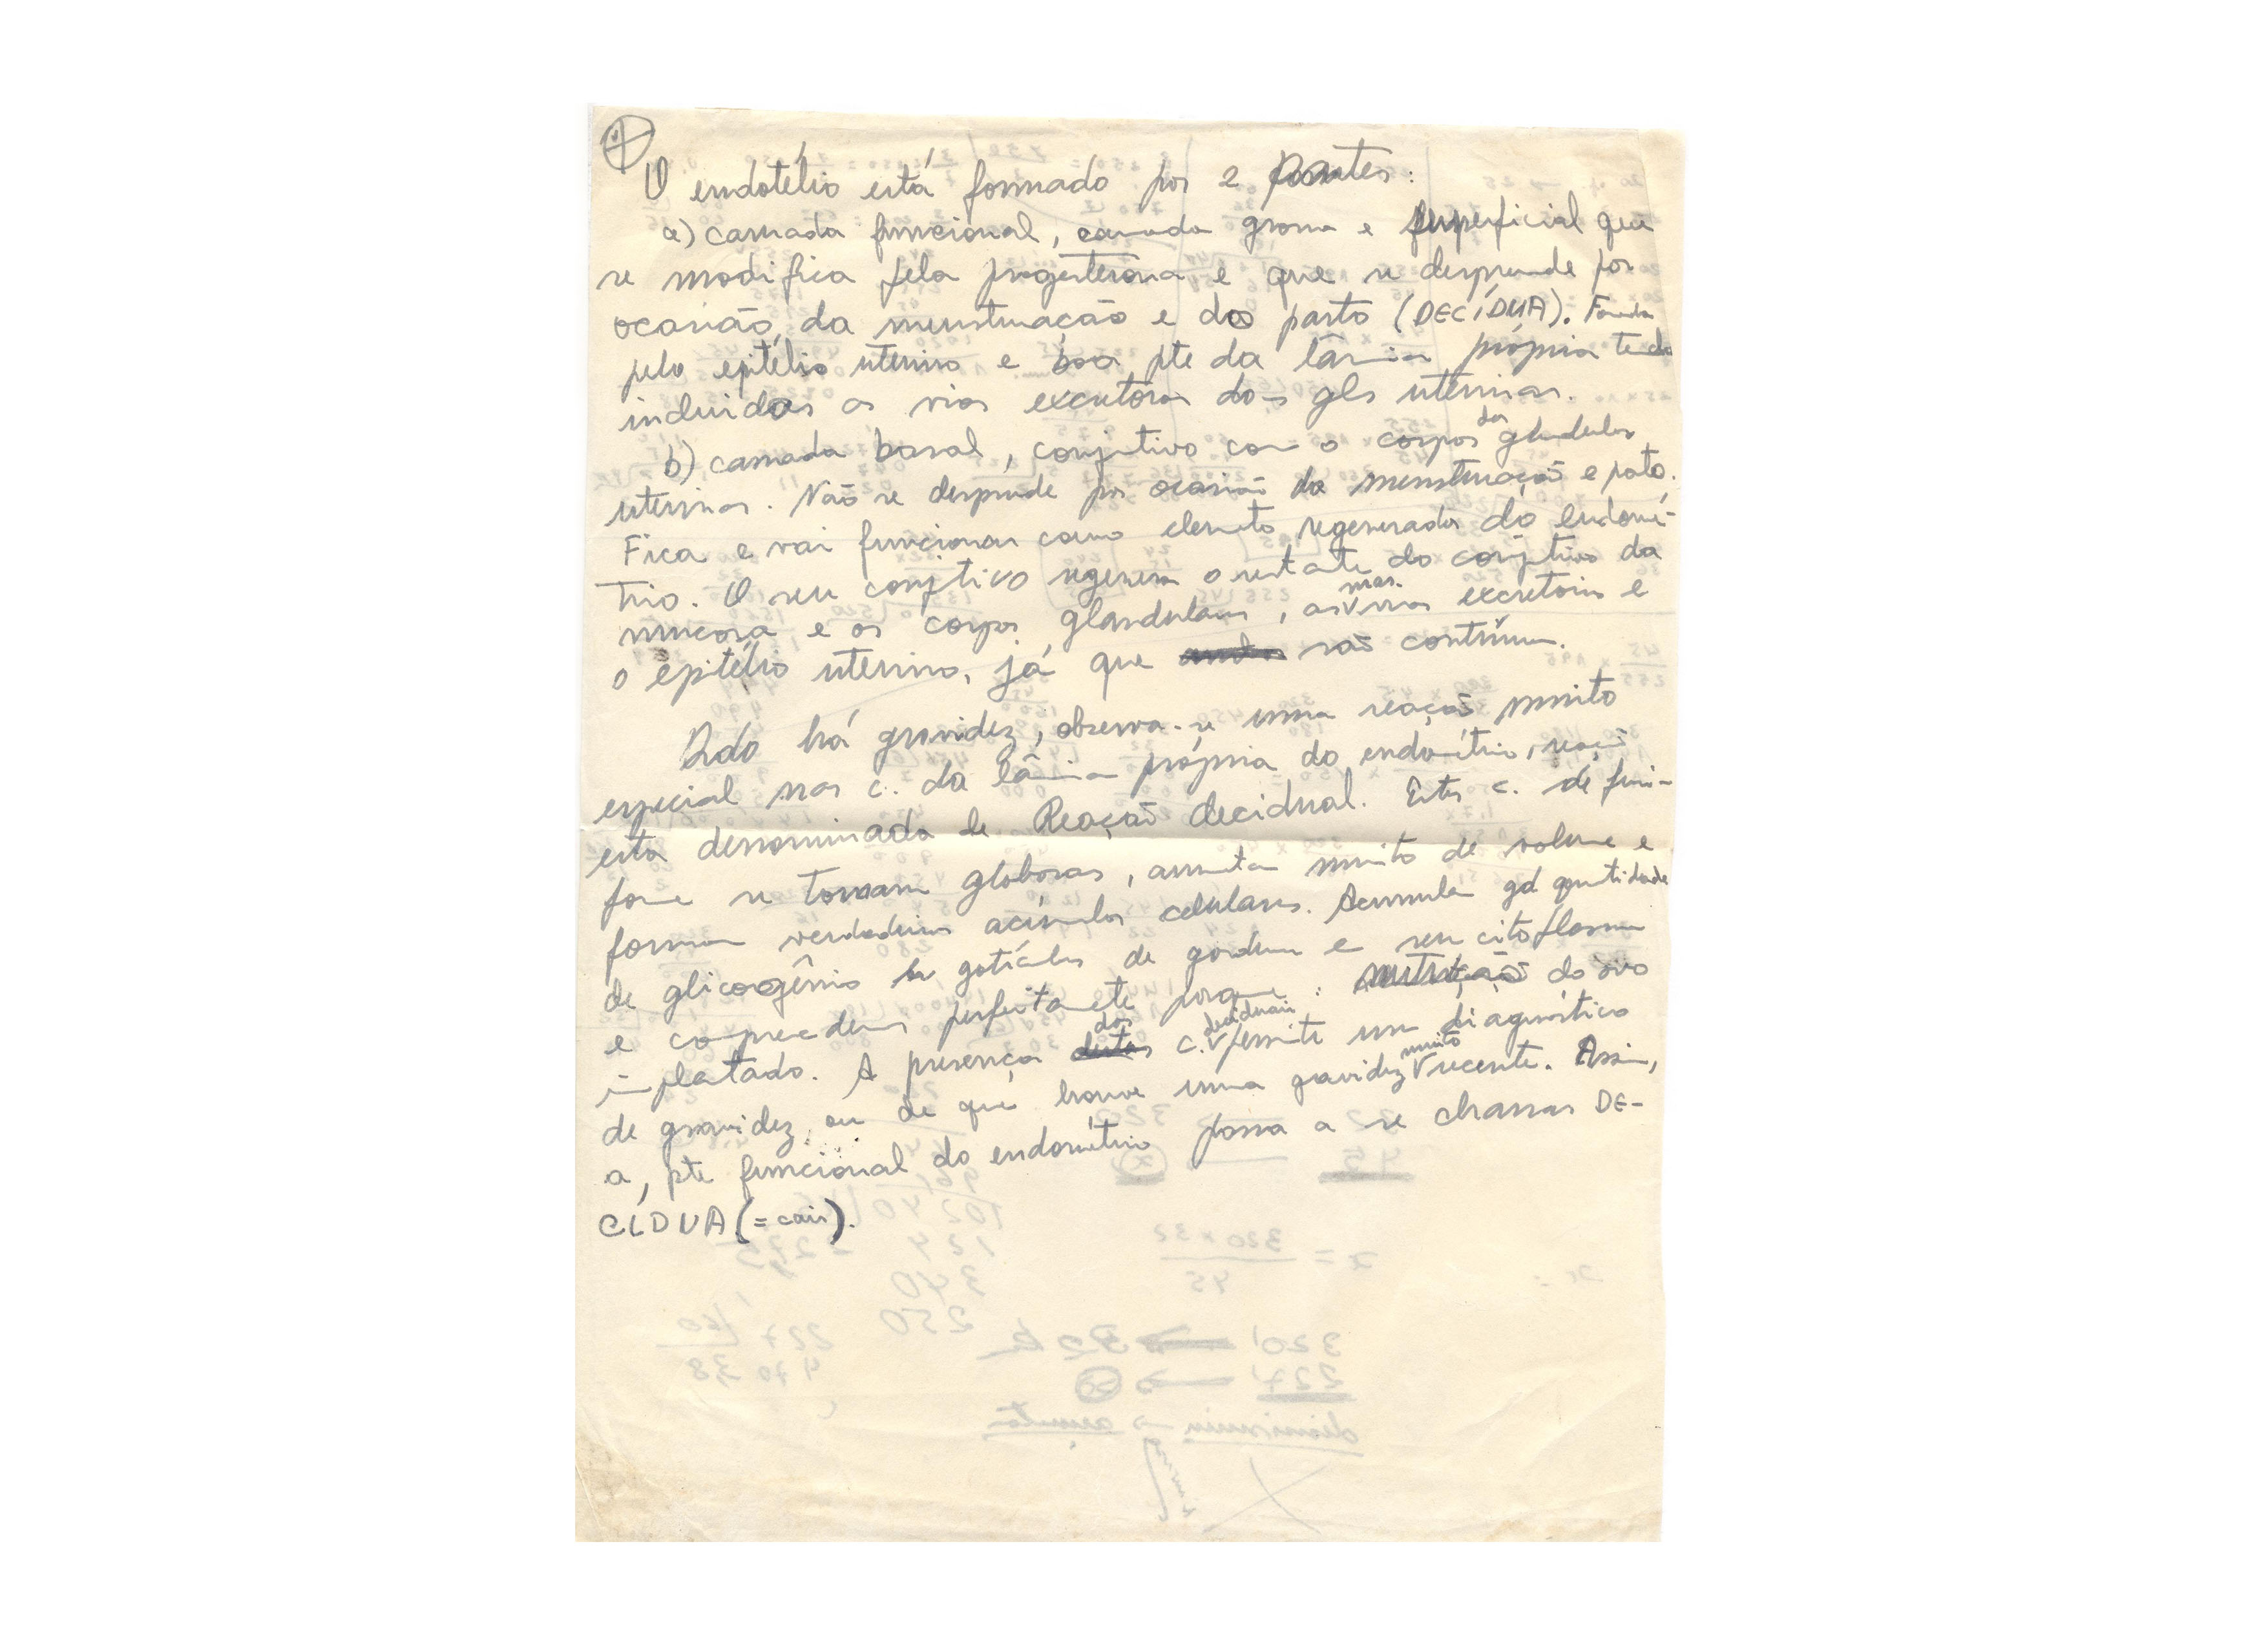 O endotélio está formado por 2 partes:
a) camada funcional, camada grossa e superficial que
se modifica pela progesterona e que se desprende por
ocasião da menstruação e do parto (DECÍDUA). Formada
pelo epitélio uterino e boa pte da lâmina própria tendo
incluidas as vias excretoras das gls uterinas.
b) camada basal, conjuntivo com o corpos das glandulas
uterinas. Não se desprende por ocasião da menstruação e parto.
Fica e vai funcionar como elemento regenerador do endomé-
trio. O seu conjuntivo regenera o restante do conjuntivo da
mucosa e os corpos glandulares, as vias excretoras e
o epitélio uterino, já que são contínuas.
há gravidez, observa-se uma reação muito
especial nas c. da lâmina própria do endométrio, reação
esta denominada de Reação decidual. Estas c. de fusi-
forme se tornam globosas, aumentam muito de volume e
formam verdadeiros acúmulos celulares. Acumulam gd quantidade
de glicogênio gotículas de gordura e seu citoplasma
e compreendemos perfeitamente porque: nutrição do ovo
implantado. A presença das c. deciduais permite um diagnóstico
de gravidez ou de que houve uma gravidez muito recente. Assim,
a pte funcional do endométrio passa a se chamar DE-
CÍDUA (= cair).